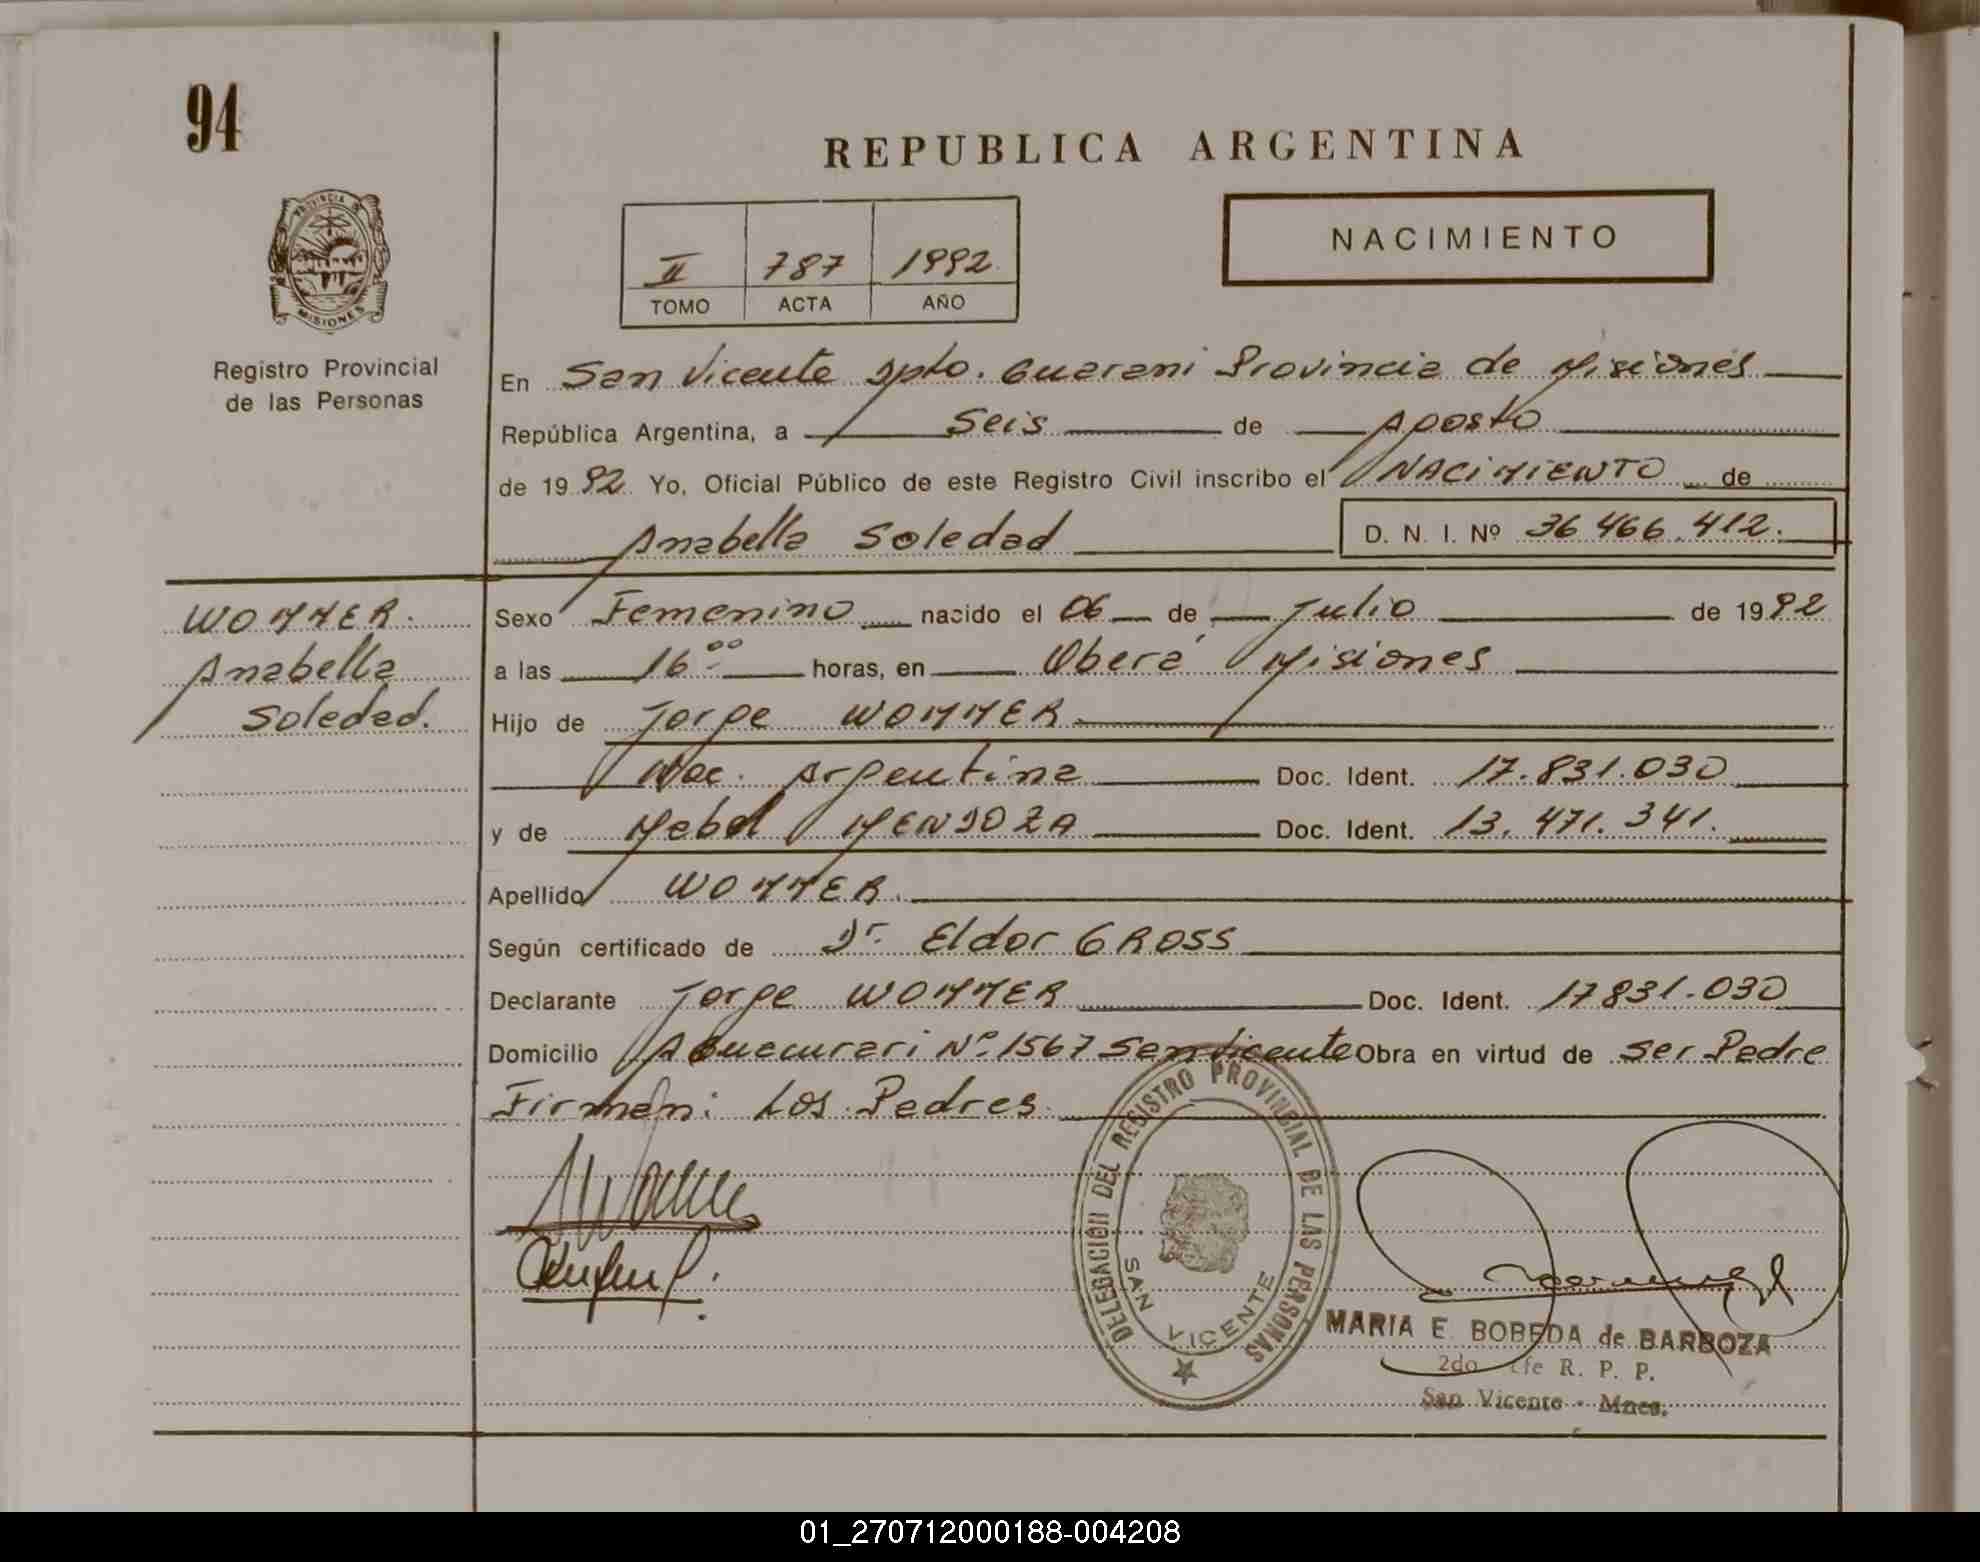 94
REPUBLICA ARGENTINA
PROVINCIA DE
MISIONES
Registro Provincial
de las Personas
II 787 1992
TOMO ACTA AÑO
NACIMIENTO
En San Vicente Dpto. Guarani Provincia de Misiones
República Argentina, a Seis de Agosto
de 1992. Yo, Oficial Público de este Registro Civil inscribo el NACIMIENTO de
Anabella Soledad D. N. I. Nº 36 466.412.
WOMMER.
Anabella
Soledad.
Sexo Femenino nacido el 06 de Julio de 1992
a las 16 00 horas, en Oberá Misiones
Hijo de Jorge WOMMER
Nac. Argentina Doc. Ident. 17.831.030
y de Mabel MENDOZA Doc. Ident. 13.471.341.
Apellido WOMMER.
Según certificado de Dr. Eldor GROSS
Declarante Jorge WOMMER Doc. Ident. 17831.030
Domicilio A Guacurari Nº 1567 San Vicente Obra en virtud de Ser Padre
Firman: Los Padres
DELEGACION DEL REGISTRO PROVINCIAL DE LAS PERSONAS
SAN VICENTE
MARIA E. BOBEDA de BARBOZA
2do R. P. P.
San Vicente - Mnes.
01_270712000188-004208